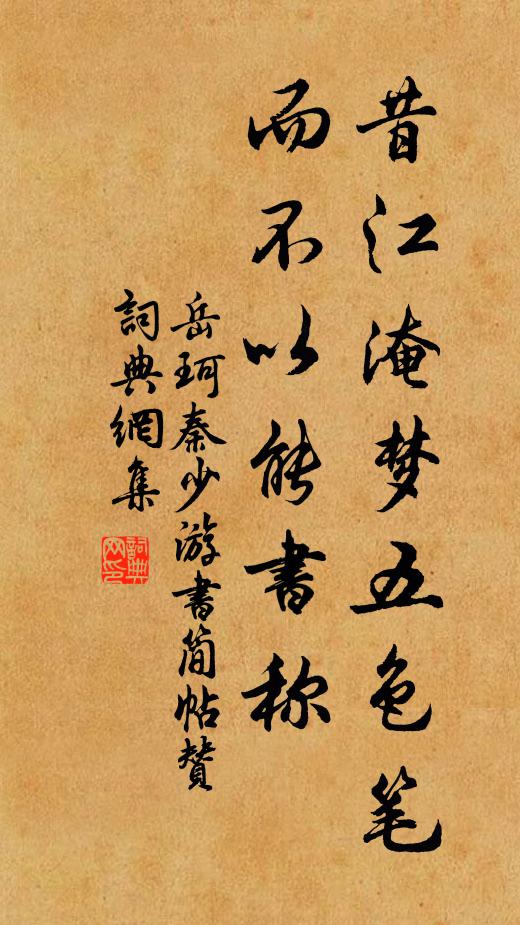 昔江淹梦五色笔
而不以能書称
岳珂秦少游書简帖赞
詞典網集
詞典网印